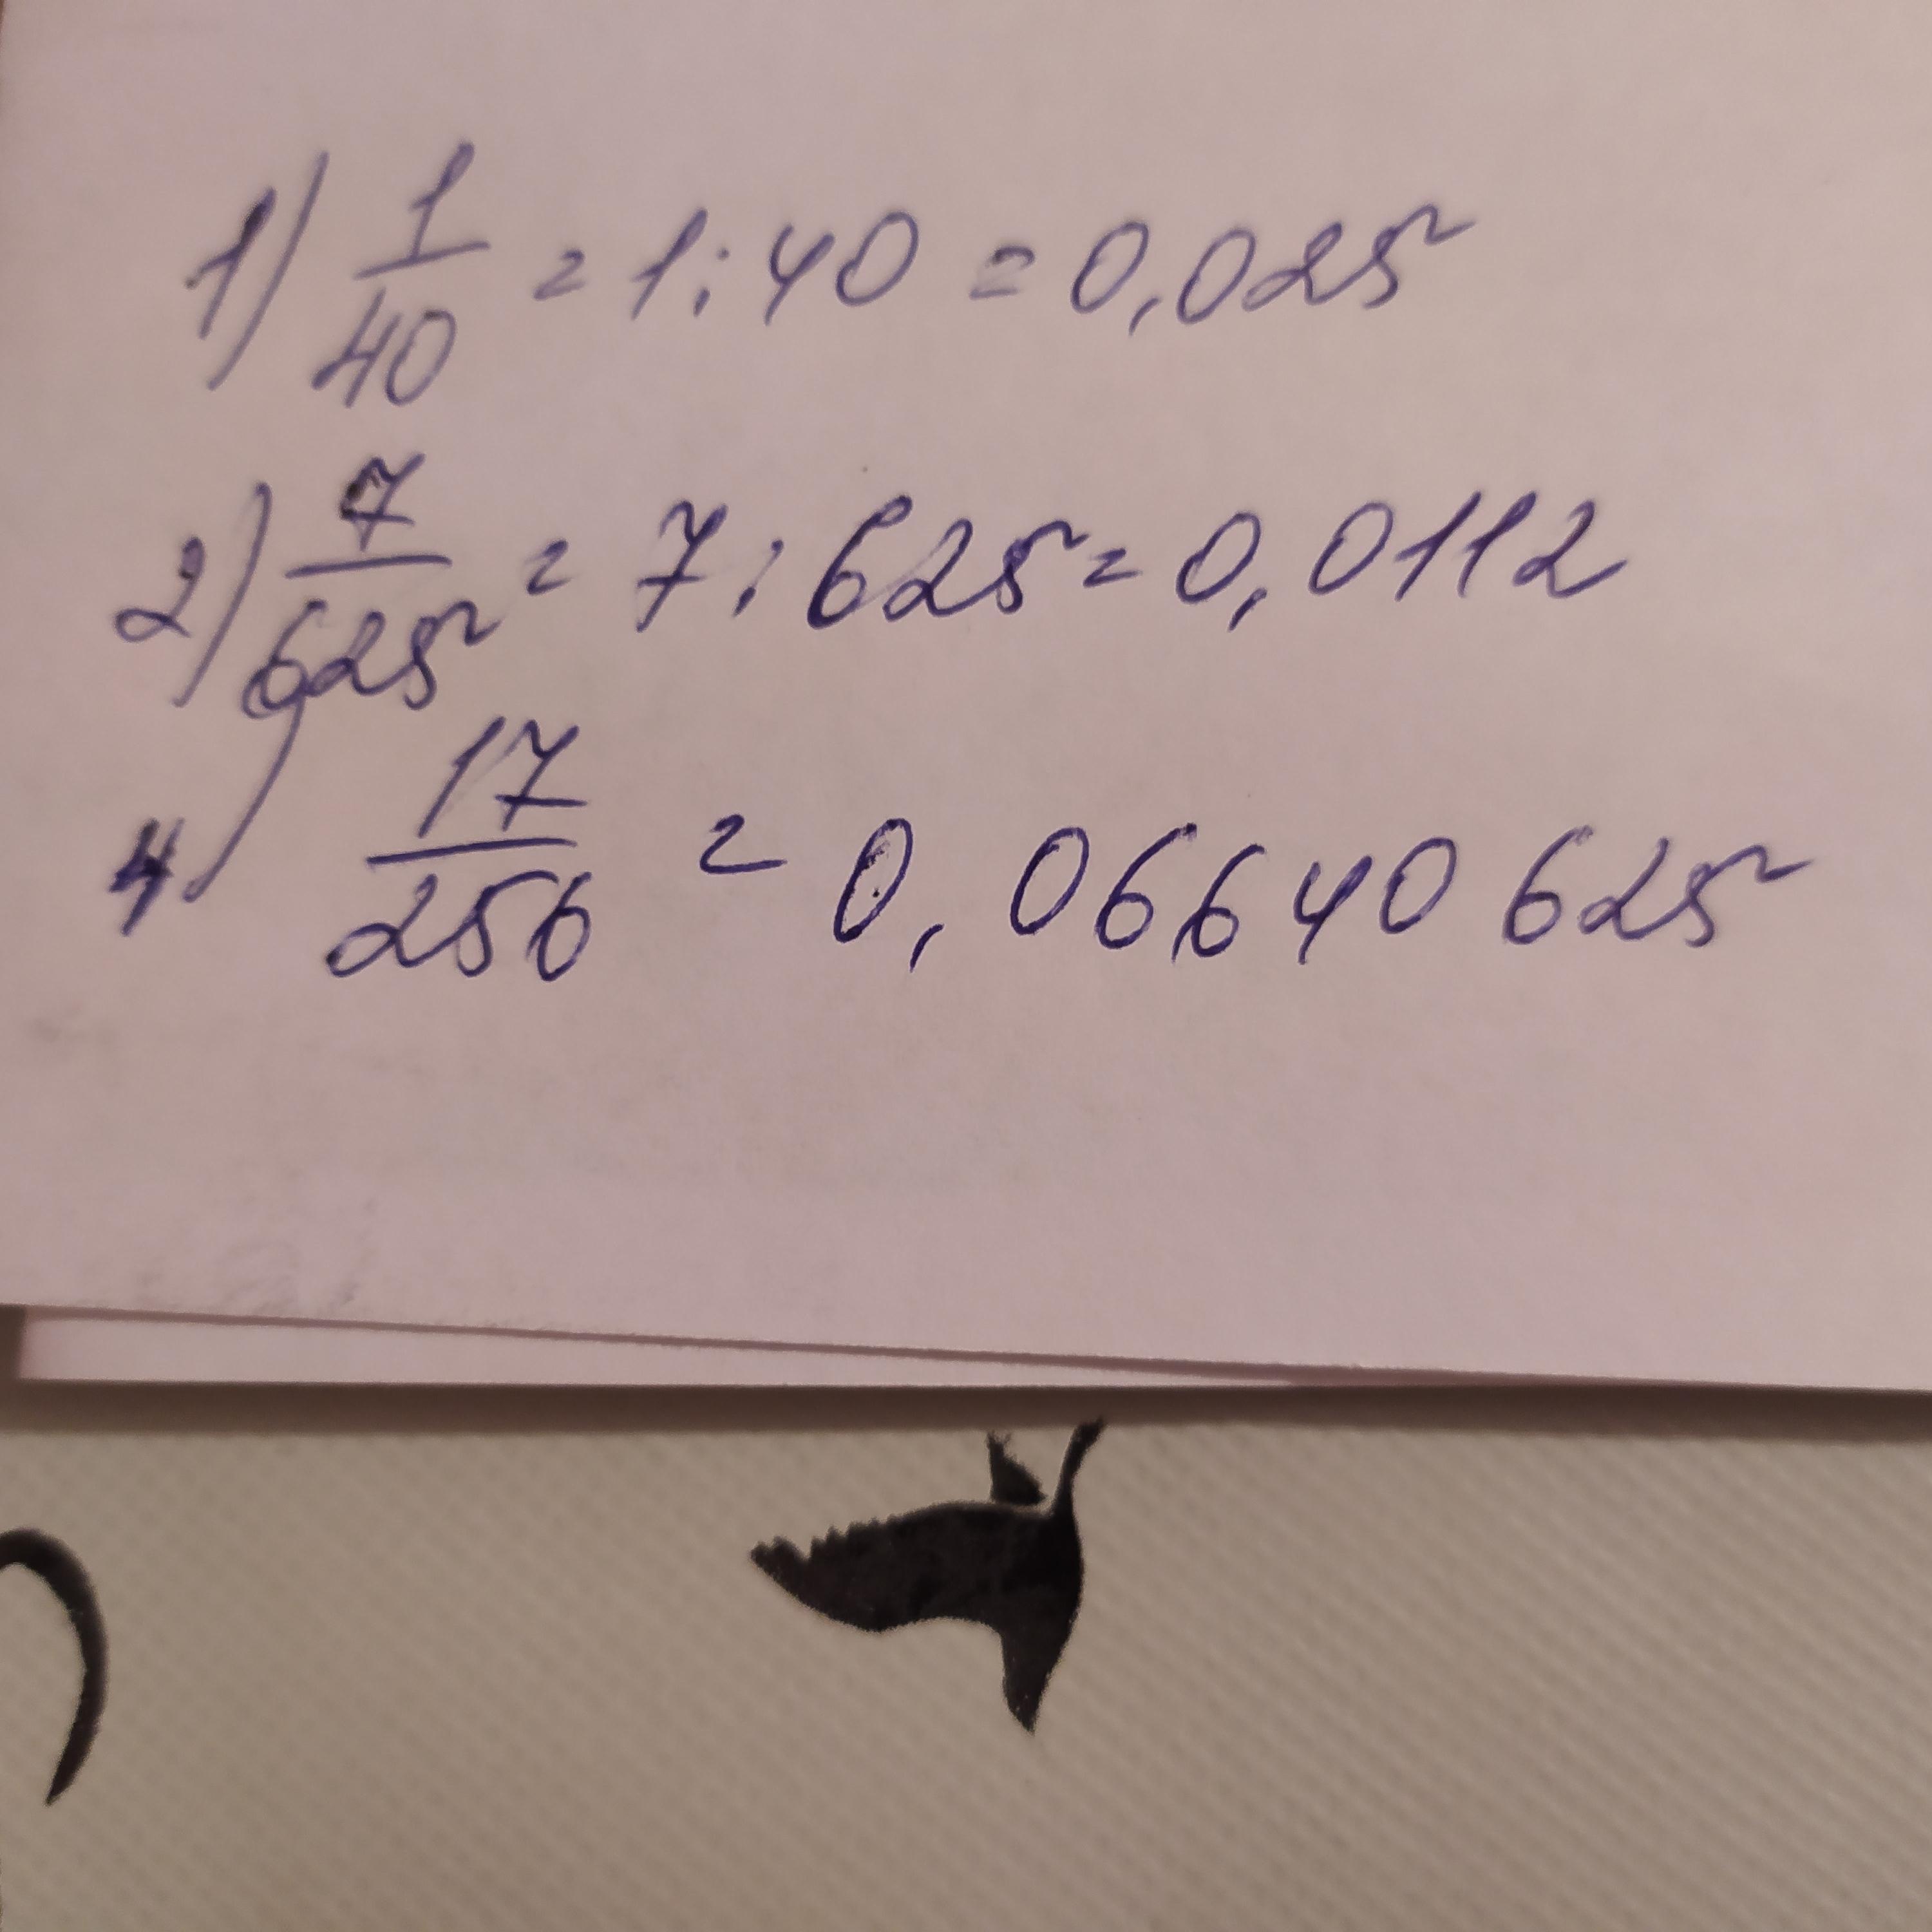 1) 1/40 = 1 : 40 = 0,025
2) 7/625 = 7 : 625 = 0,0112
4) 17/256 = 0,06640625